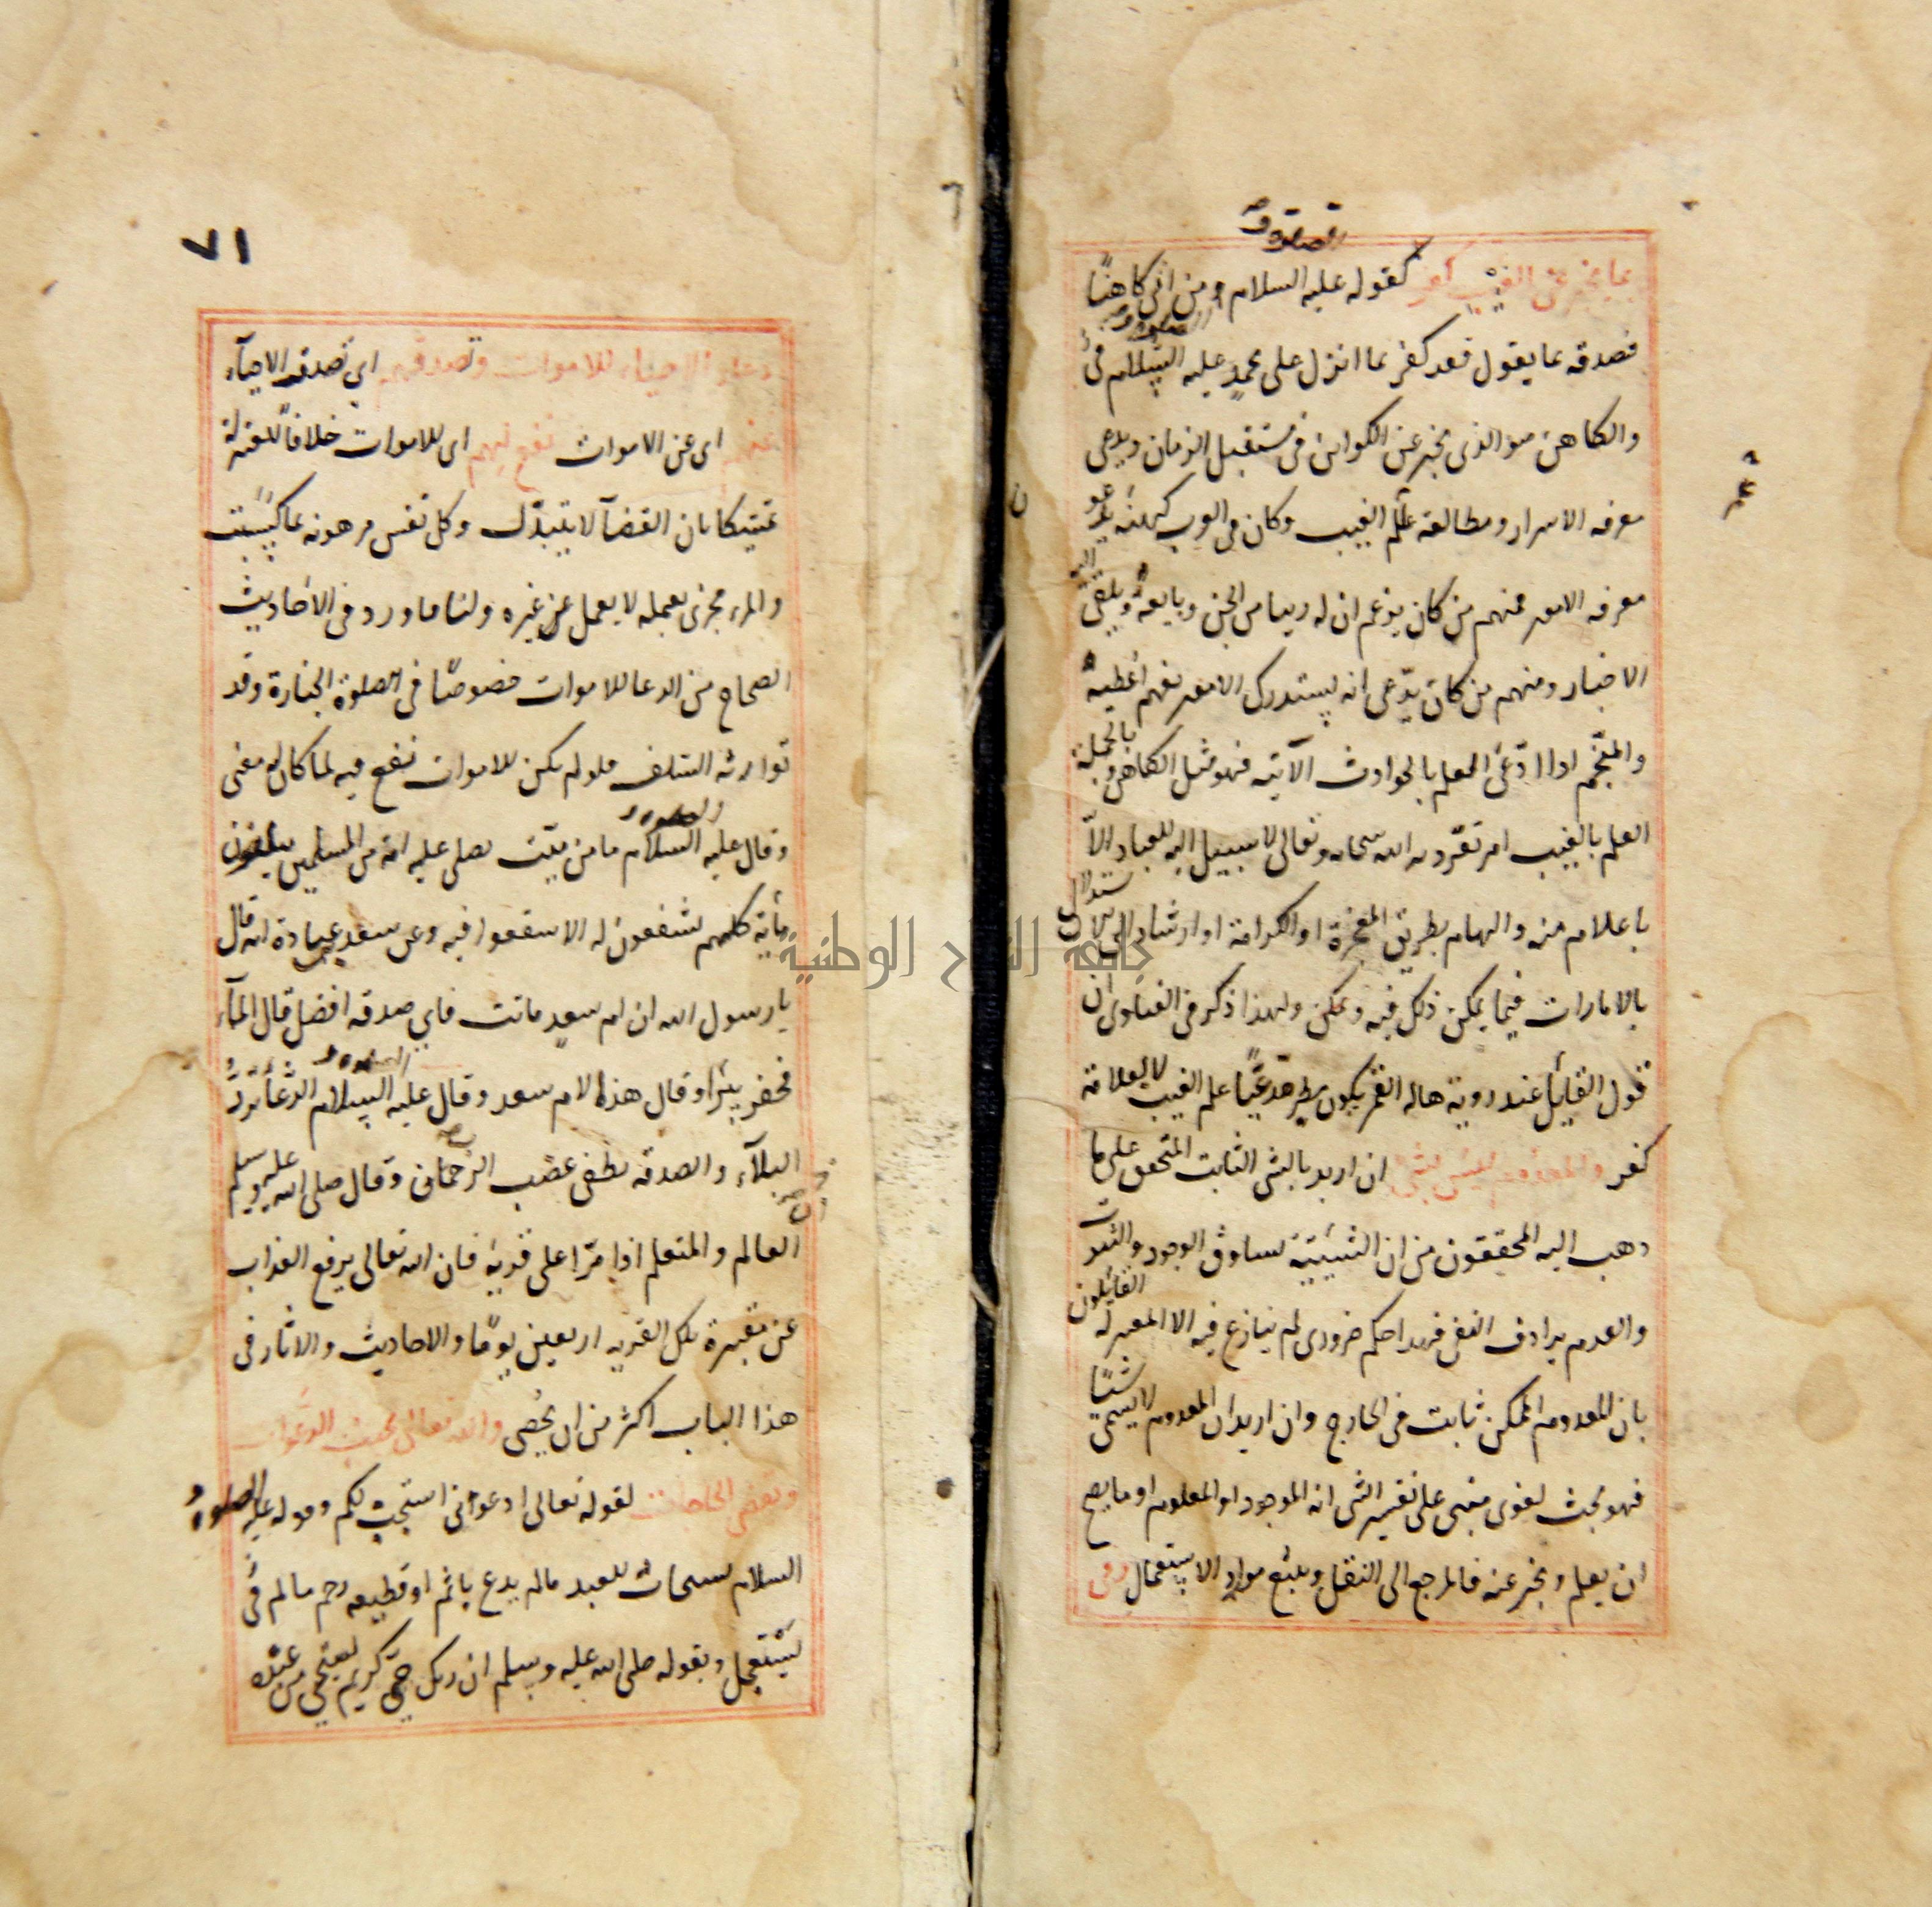 بما يخبر عن الغيب كفر كقوله عليه السلام ومن اتى كاهنًا
فصدقه بما يقول فقد كفر بما انزل على محمدٍ عليه السّلام
والكاهن هو الذى يخبر عن الكواين فى مستقبل الزمان ويدعى
معرفه الاسرار ومطالعة علم الغيب وكان فى العرب كهنة يدعو
معرفه الامور فمنهم من كان يزعم ان له رييا من الجن وتابعة ويلقى اليه
الاخبار ومنهم من كان يدّعى انه يستدرك الامور بفهم اعطيه
والمنجّم اذا ادّعى العلم بالحوادث الآتيه فهو مثل الكاهن وبالجملة
العلم بالغيب امر تفرّد به الله سبحانه وتعالى لا سبيل اليه للعباد الاّ
باعلام منه والهام بطريق المعجزة او الكرامة او ارشاد الى الاستدلال
بالامارات فيما يمكن ذلك فيه ولهذا ذكر فى الفتاوى ان
قول القايل عند روية هالة القمر يكون مطر مدّعيًا علم الغيب لا بعلامة
كفر والمعدوم ليس بشئ ان اريد بالشئ الثابت المتحقق على ما
دهب اليه المحققون من ان الشيئية تساوق الوجود والثبوت
والعدم يرادف النفى فهدا حكم ضرورى لم ينازع فيه الا المعتزلة القائلون
بان المعدوم الممكن ثابت فى الخارج وان اريد ان المعدوم لا يسمى شئيا
فهو بحث لغوى مبنى على تفسير الشئ انه الموجود او المعلوم او ما يصح
ان يعلم ويخبر عنه فالمرجع الى النقل وتتبع موارد الاستعمال وفى
٧١
دعاء الاحياء للاموات وتصدقهم اى تصدق الاحيآء
عنهم اى عن الاموات نفع لهم اى للاموات خلافًا للمعتزلة
تمسكا بان القضآ لا يتبدّل وكل نفس مرهونه بما كسبت
والمرء مجزى بعمله لا بعمل غيره ولنا ما ورد فى الاحاديث
الصحاح من الدعا للاموات خصوصًا فى الصلوة الجنازة وقد
توارثه السلف فلو لم يكن للاموات نفع فيه لما كان له معنى
وقال عليه السلام ما من ميّت يصلى عليه امة من المسلمين يبلغون
مأية كلهم يشفعون له الا شفعوا فيه وعن سعد بن عبادة انه قال
يا رسول الله ان ام سعدٍ ماتت فاى صدقه افضل قال المآء
فحفر بيئرا وقال هذا لام سعد وقال عليه السلام الدّعآ يردّ
البلآء والصدقه تطفى غضب الرّحمان وقال صلى الله عليه وسلم
العالم والمتعلم اذا مرّا على قرية فان الله تعالى يرفع العذاب
عن مقبرة تلك القريه اربعين يومًا والاحاديث والاثار فى
هذا الباب اكثر من ان يحصى والله تعالى يجيب الدعوات
ويقضى الحاجات لقوله تعالى ادعونى استجب لكم وقوله عليه الصلوة
السلام يستجاب للعبد ما لم يدع باثم او قطيعه رحم ما لم
يستعجل وبقوله صلى الله عليه وسلم ان ربكم حيىّ كريم يستحيى من عبده
جامعة النجاح الوطنية